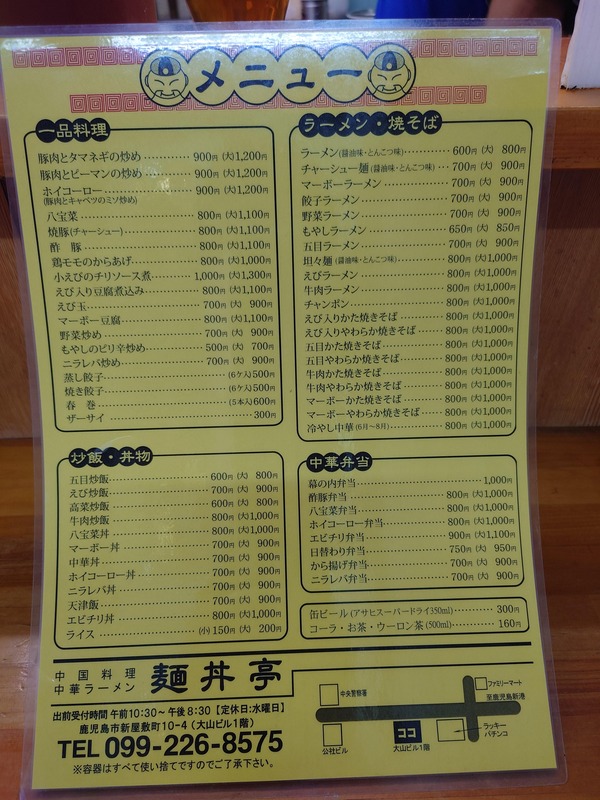 メニュー
一品料理
豚肉とタマネギの炒め 900円 (大)1,200円
豚肉とピーマンの炒め 900円 (大)1,200円
ホイコーロー 900円 (大)1,200円
(豚肉とキャベツのミソ炒め)
八宝菜 800円 (大)1,100円
焼豚(チャーシュー) 800円 (大)1,100円
酢 豚 800円 (大)1,100円
鶏モモのからあげ 800円 (大)1,000円
小えびのチリソース煮 1,000円 (大)1,300円
えび入り豆腐煮込み 800円 (大)1,100円
えび玉 700円 (大) 900円
マーボー豆腐 800円 (大)1,100円
野菜炒め 700円 (大) 900円
もやしのピリ辛炒め 500円 (大) 700円
ニラレバ炒め 700円 (大) 900円
蒸し餃子 (6ケ入)500円
焼き餃子 (6ケ入)500円
春 巻 (5本入)600円
ザーサイ 300円
ラーメン・焼そば
ラーメン(醤油味・とんこつ味) 600円 (大) 800円
チャーシュー麺(醤油味・とんこつ味) 700円 (大) 900円
マーボーラーメン 700円 (大) 900円
餃子ラーメン 700円 (大) 900円
野菜ラーメン 700円 (大) 900円
もやしラーメン 650円 (大) 850円
五目ラーメン 700円 (大) 900円
坦々麺(醤油味・とんこつ味) 800円 (大)1,000円
えびラーメン 800円 (大)1,000円
牛肉ラーメン 800円 (大)1,000円
チャンポン 800円 (大)1,000円
えび入りかた焼きそば 800円 (大)1,000円
えび入りやわらか焼きそば 800円 (大)1,000円
五目かた焼きそば 800円 (大)1,000円
五目やわらか焼きそば 800円 (大)1,000円
牛肉かた焼きそば 800円 (大)1,000円
牛肉やわらか焼きそば 800円 (大)1,000円
マーボーかた焼きそば 800円 (大)1,000円
マーボーやわらか焼きそば 800円 (大)1,000円
冷やし中華(6月～8月) 800円 (大)1,000円
炒飯・丼物
五目炒飯 600円 (大) 800円
えび炒飯 700円 (大) 900円
高菜炒飯 600円 (大) 800円
牛肉炒飯 800円 (大)1,000円
八宝菜丼 800円 (大)1,000円
マーボー丼 700円 (大) 900円
中華丼 700円 (大) 900円
ホイコーロー丼 700円 (大) 900円
ニラレバ丼 700円 (大) 900円
天津飯 700円 (大) 900円
エビチリ丼 800円 (大)1,000円
ライス (小)150円 (大) 200円
中華弁当
幕の内弁当 1,000円
酢豚弁当 800円 (大)1,000円
八宝菜弁当 800円 (大)1,000円
ホイコーロー弁当 800円 (大)1,000円
エビチリ弁当 900円 (大)1,100円
日替わり弁当 750円 (大) 950円
から揚げ弁当 700円 (大) 900円
ニラレバ弁当 700円 (大) 900円
缶ビール(アサヒスーパードライ350ml) 300円
コーラ・お茶・ウーロン茶(500ml) 160円
中国料理
中華ラーメン
麺丼亭
出前受付時間 午前10:30～午後8:30【定休日:水曜日】
鹿児島市新屋敷町10-4(大山ビル1階)
TEL 099-226-8575
※容器はすべて使い捨てですのでご了承下さい。
中央警察署
ファミリーマート
至鹿児島新港
公社ビル
ココ
大山ビル1階
ラッキー
パチンコ